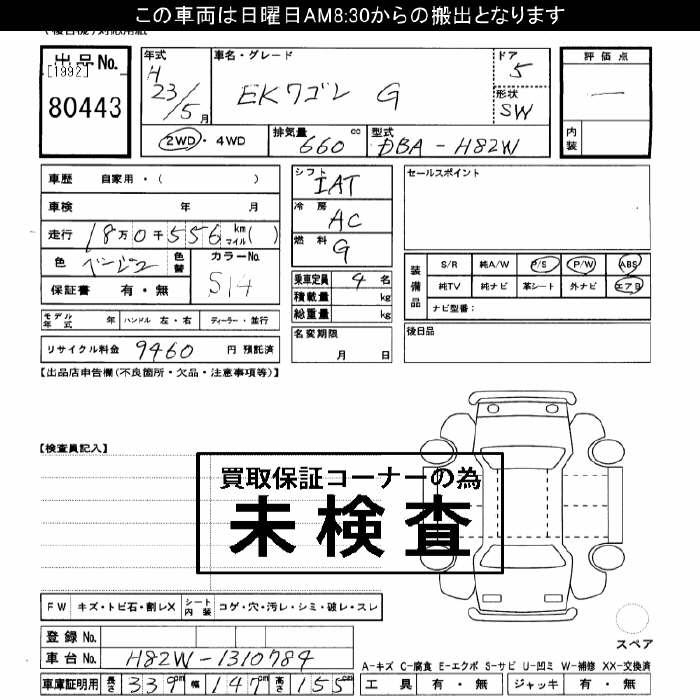 この車両は日曜日AM8:30からの搬出となります
出品No.
[1992]
80443
年式
H
23/5月
車名・グレード
EKワゴン G
ドア
5
形状
SW
評価点
―
内装
2WD・4WD
排気量
660cc
型式
DBA-H82W
車歴 自家用・( )
車検 年 月
走行 18万0千556km マイル( )
色 ベージュ 色替
カラーNo.
S14
保証書 有・無
シフト
IAT
冷房
AC
燃料
G
乗車定員 4名
積載量 kg
総重量 kg
セールスポイント
装備品
S/R 純A/W P/S P/W ABS
純TV 純ナビ 革シート 外ナビ エアB
ナビ型番:
モデル年式 年 ハンドル 左・右 ディーラー・並行
名変期限
月 日
後日品
リサイクル料金 9460 円 預託済
【出品店申告欄(不良箇所・欠品・注意事項等)】
【検査員記入】
買取保証コーナーの為
未検査
FW キズ・トビ石・割レX シート内装 コゲ・穴・汚レ・シミ・破レ・スレ
スペア
登録No.
車台No. H82W-1310784
A-キズ C-腐食 E-エクボ S-サビ U-凹ミ W-補修 XX-交換済
車庫証明用 長さ 339cm 幅 147cm 高さ 155cm
工具 有・無 ジャッキ 有・無